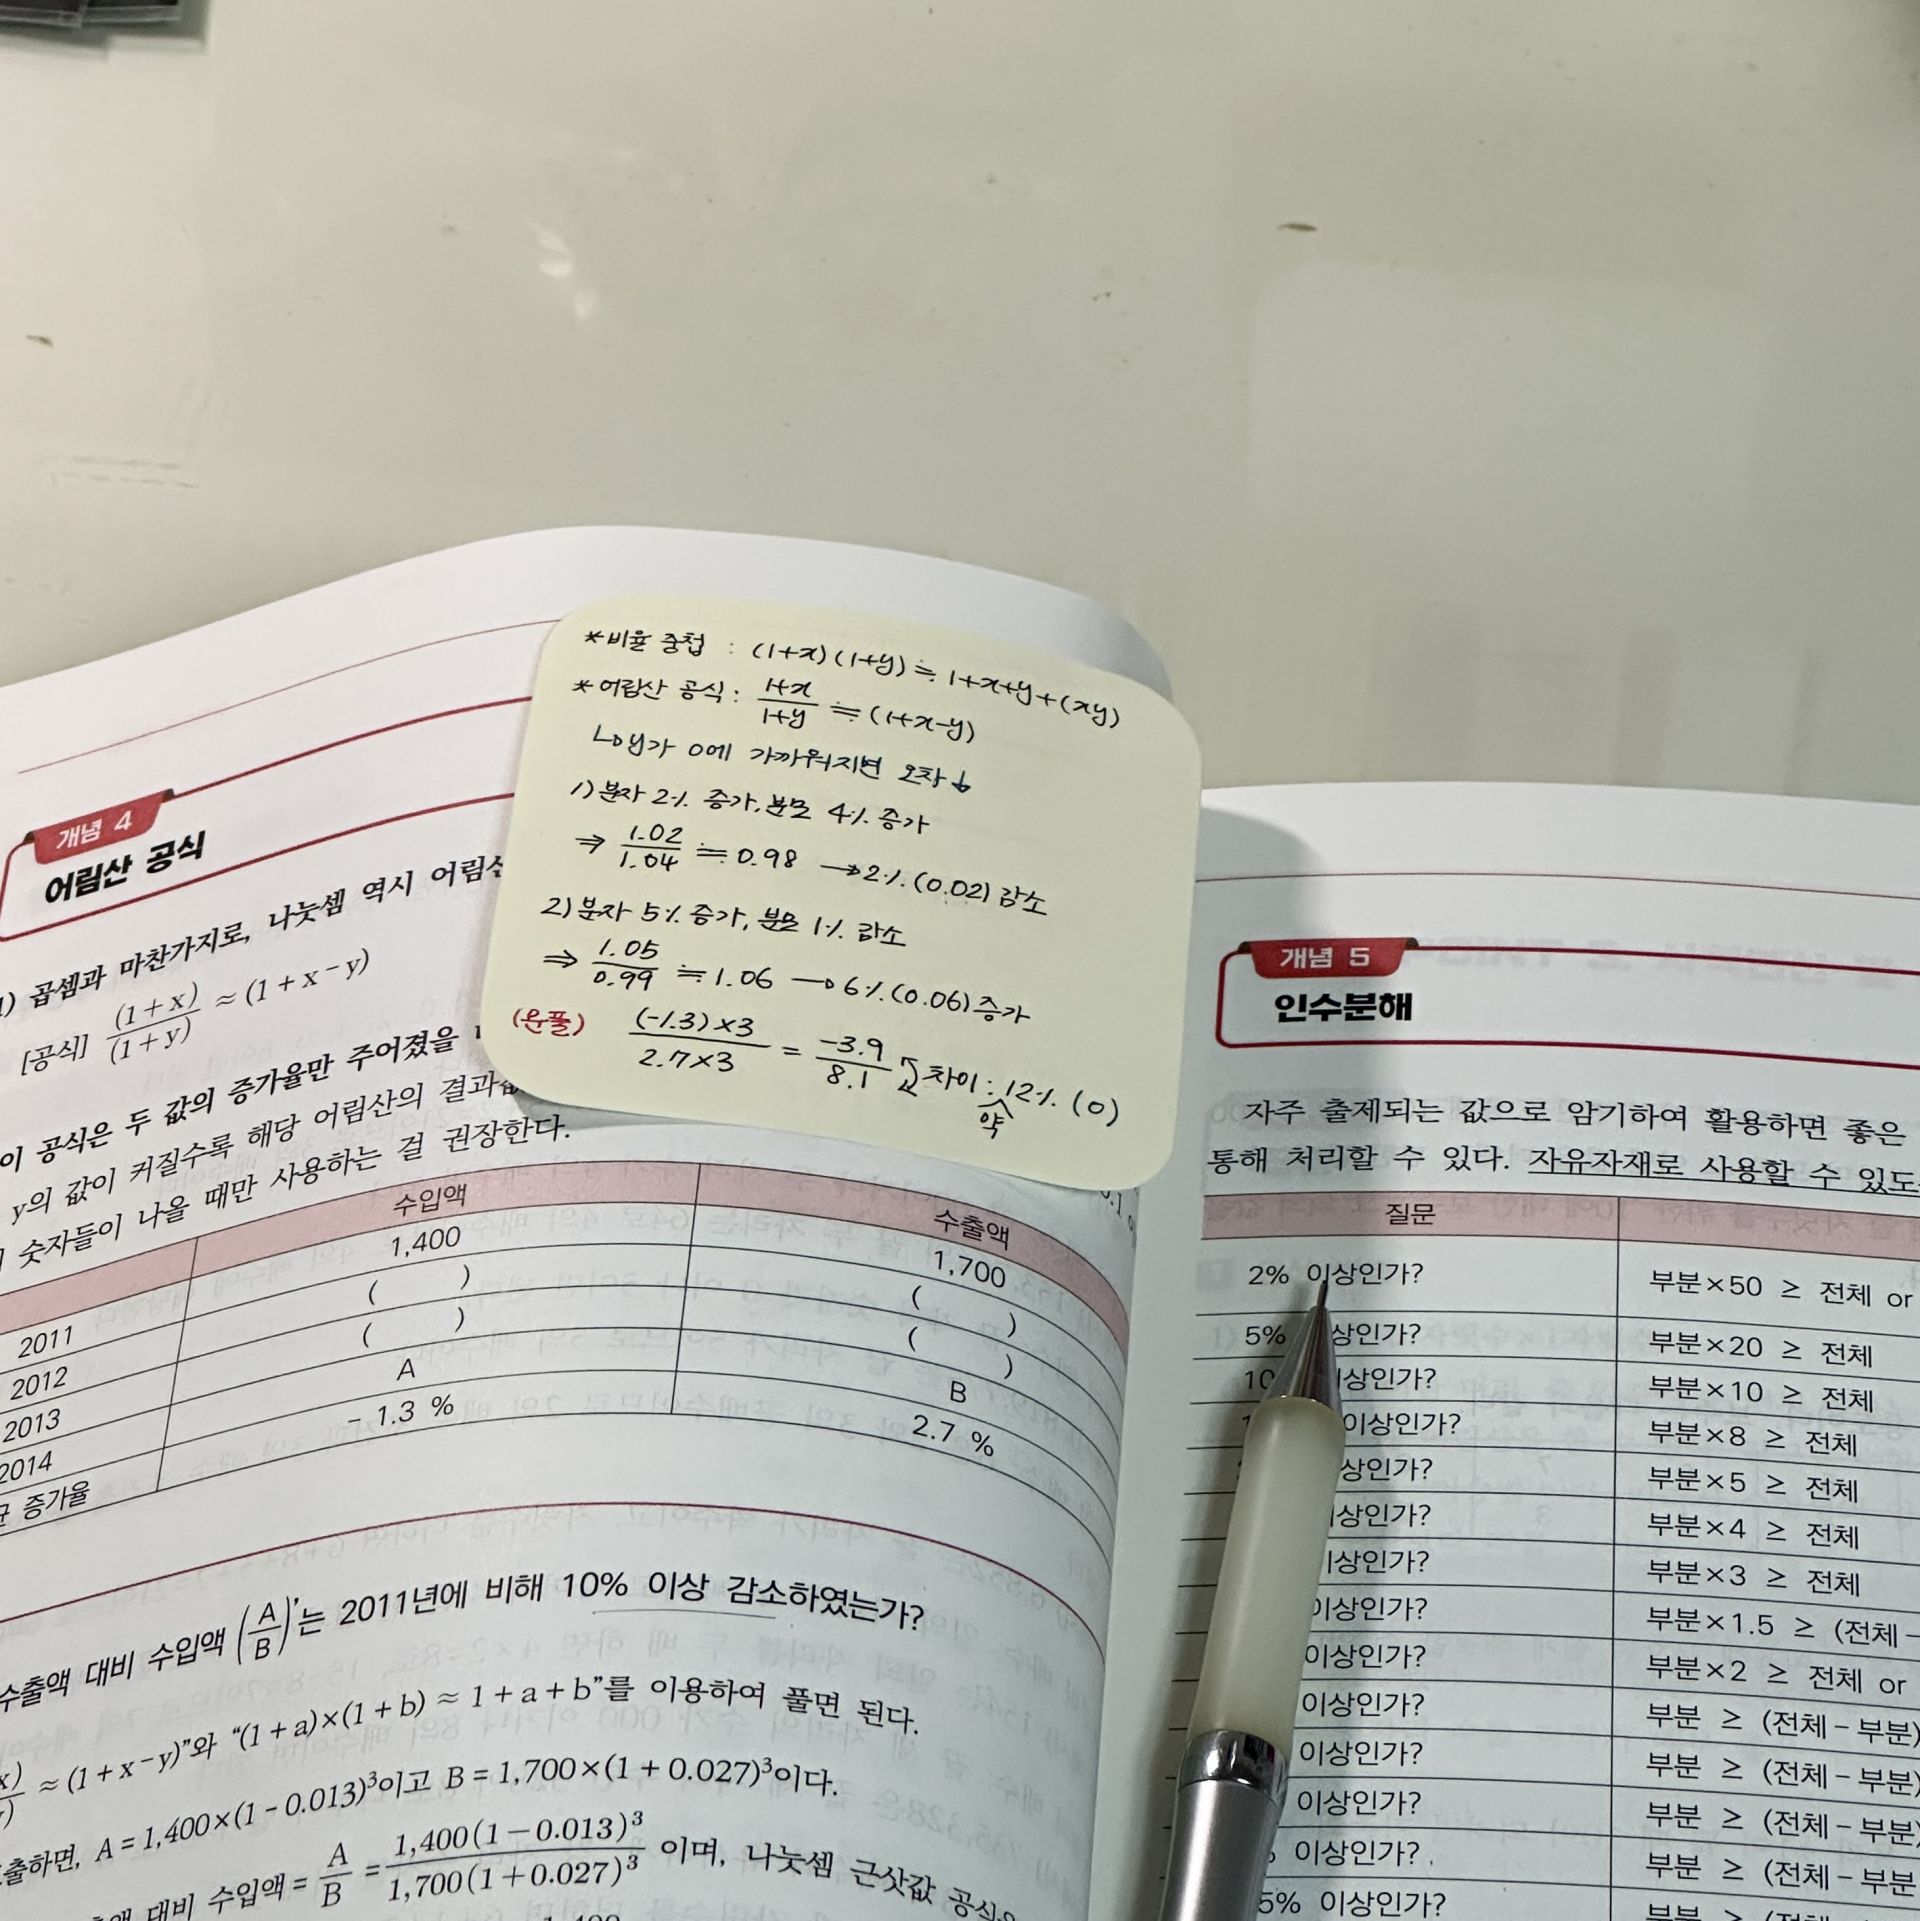 *비율 중첩 : (1+x)(1+y)≒1+x+y+(xy)
*어림산 공식 : (1+x)/(1+y) ≒ (1+x-y)
↳y가 0에 가까워지면 오차↓
1) 분자 2% 증가, 분모 4% 증가
⇒ 1.02/1.04 ≒ 0.98 → 2%(0.02) 감소
2) 분자 5% 증가, 분모 1% 감소
⇒ 1.05/0.99 ≒ 1.06 → 6%(0.06) 증가
(윤풀) (-1.3)×3/2.7×3 = -3.9/8.1 차이 : 12% (0)
약
개념 4
어림산 공식
1) 곱셈과 마찬가지로, 나눗셈 역시
[공식] (1+x)/(1+y) ≈ (1+x-y)
이 공식은 두 값의 증가율만 주어졌을
y의 값이 커질수록 해당 어림산의
숫자들이 나올 때만 사용하는 걸 권장한다.
수입액 수출액
2011 1,400 1,700
2012 ( ) ( )
2013 ( ) ( )
2014 A B
증가율 -1.3 % 2.7 %
수출액 대비 수입액(A/B)'는 2011년에 비해 10% 이상 감소하였는가?
≈(1+x-y)"와 "(1+a)×(1+b)≈1+a+b"를 이용하여 풀면 된다.
A=1,400×(1-0.013)³이고 B=1,700×(1+0.027)³이다.
대비 수입액= A/B = 1,400(1-0.013)³/1,700(1+0.027)³ 이며, 나눗셈 근삿값
개념 5
인수분해
자주 출제되는 값으로 암기하여 활용하면 좋은
통해 처리할 수 있다. 자유자재로 사용할 수 있도
질문
2% 이상인가? 부분×50 ≥ 전체 or
5% 상인가? 부분×20 ≥ 전체
10 상인가? 부분×10 ≥ 전체
이상인가? 부분×8 ≥ 전체
상인가? 부분×5 ≥ 전체
상인가? 부분×4 ≥ 전체
이상인가? 부분×3 ≥ 전체
이상인가? 부분×1.5 ≥ (전체-
이상인가? 부분×2 ≥ 전체 or
이상인가? 부분 ≥ (전체-부분)
이상인가? 부분 ≥ (전체-부분)
이상인가? 부분 ≥ (전체-부분)
이상인가? 부분 ≥ (전체-부분
5% 이상인가?